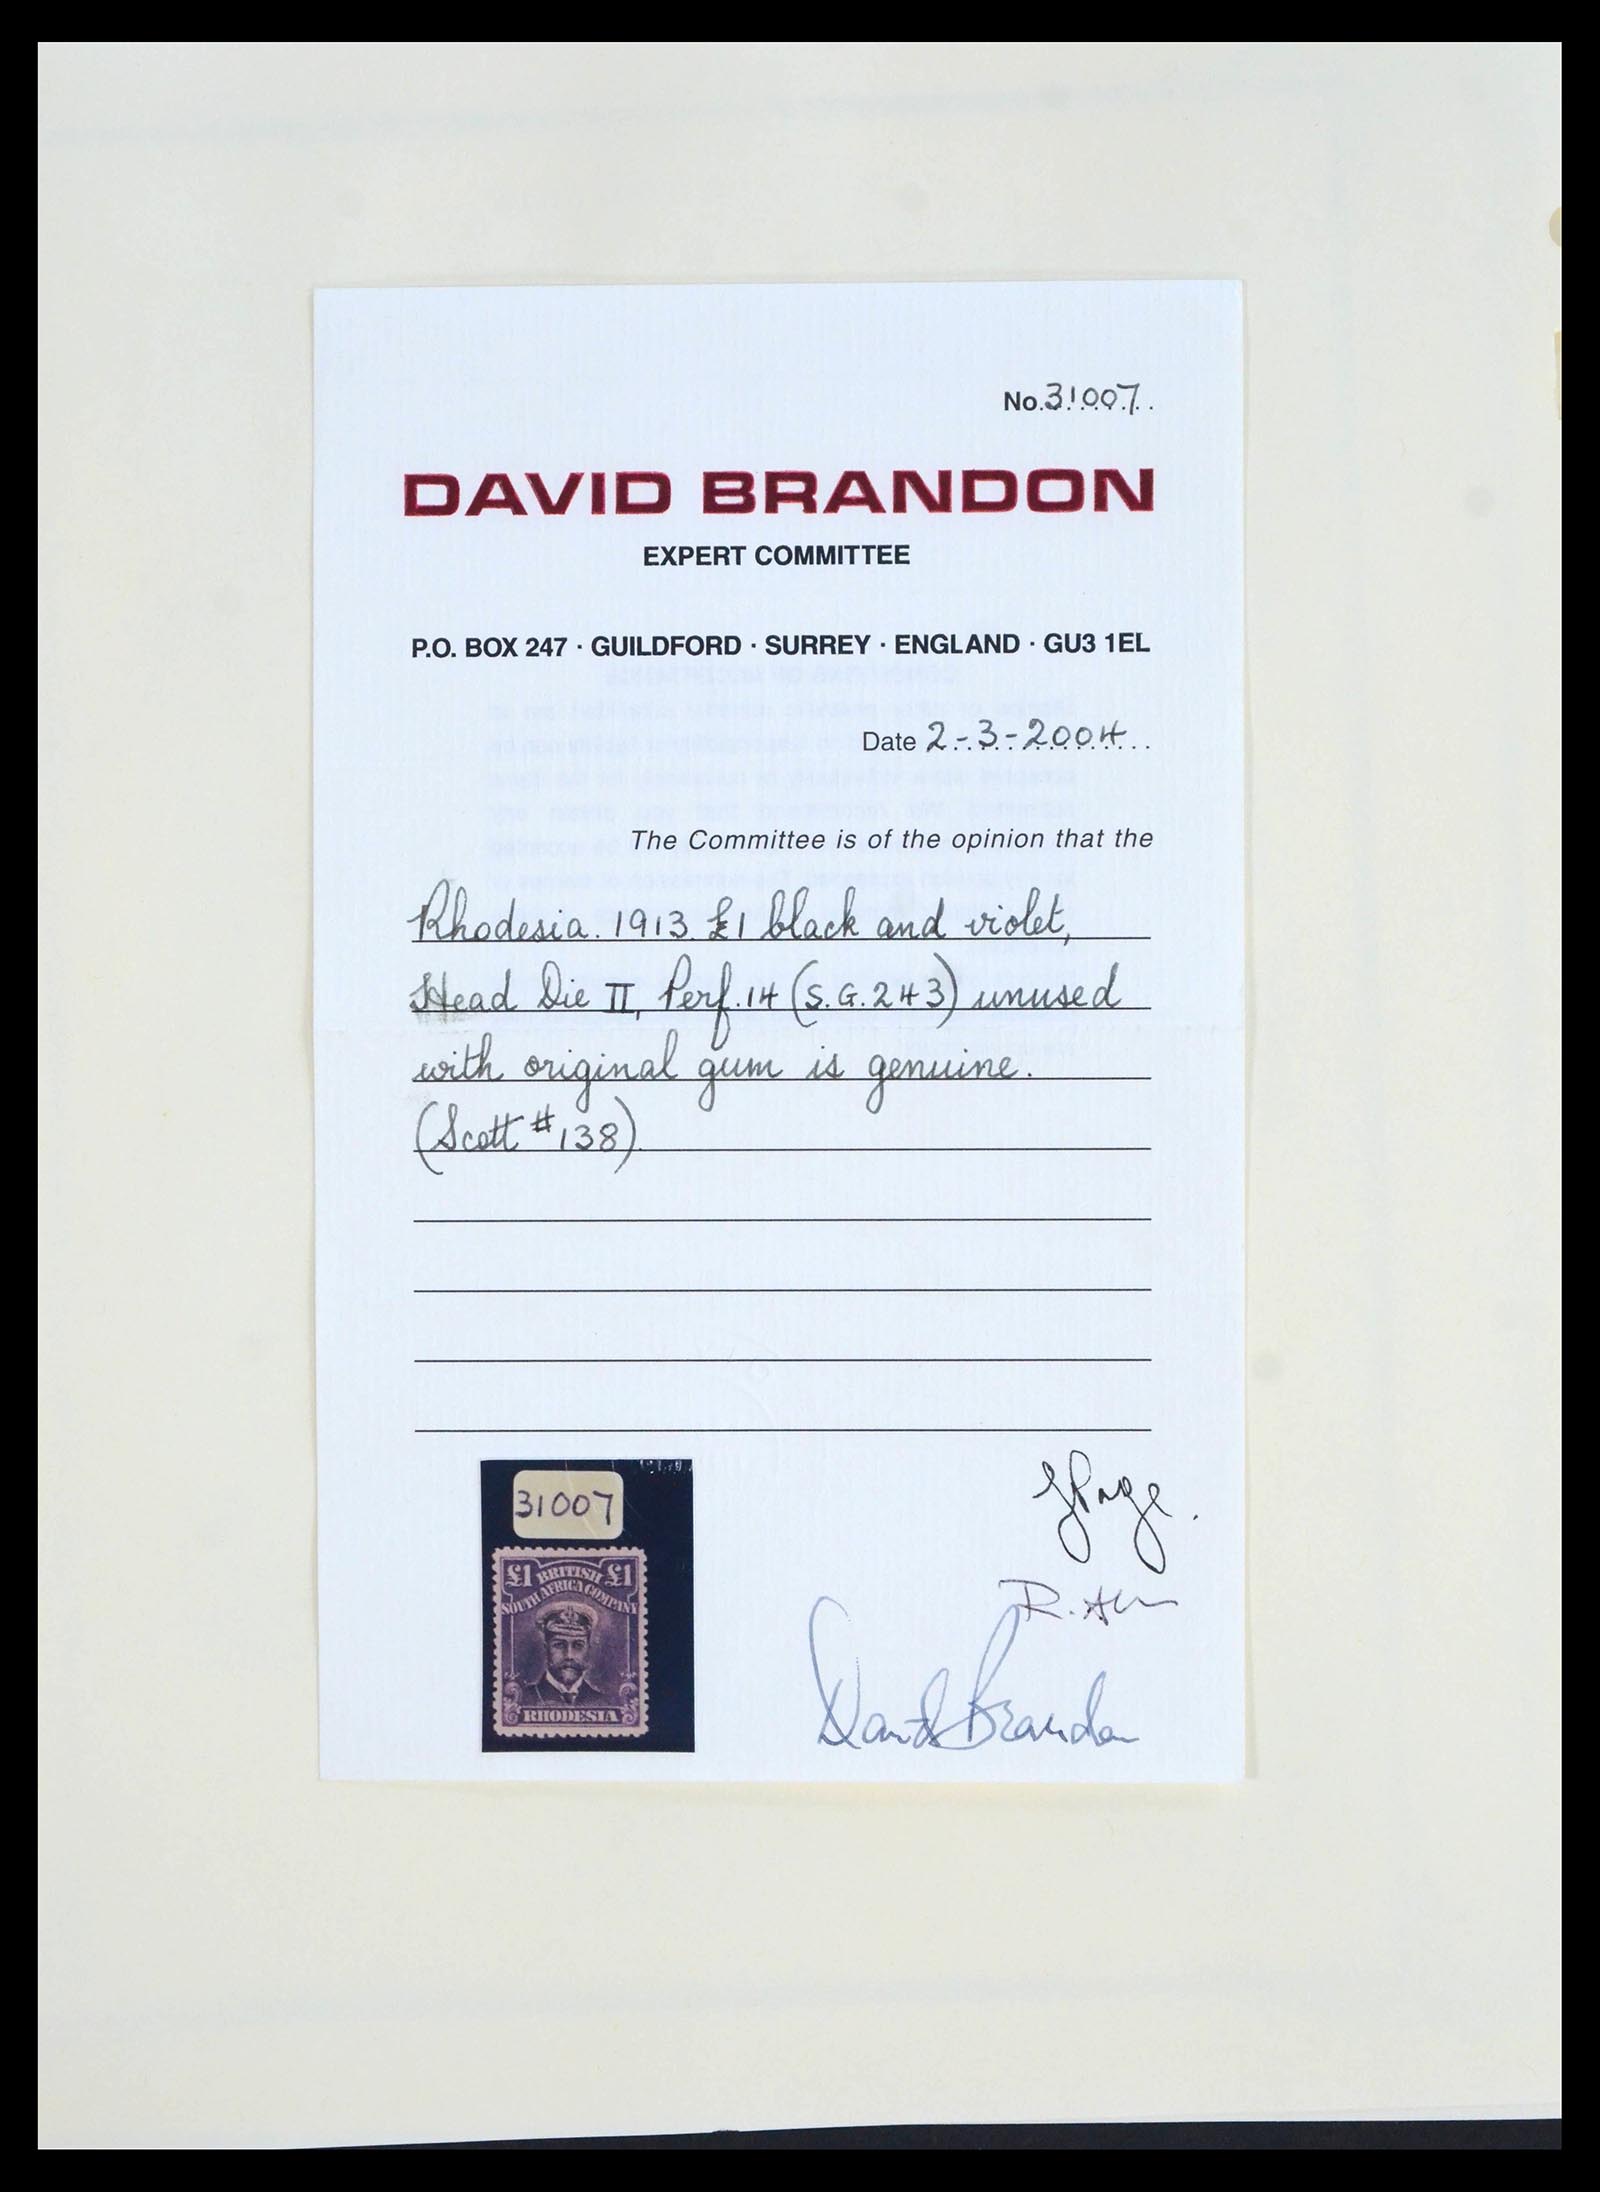 No. 31007
DAVID BRANDON
EXPERT COMMITTEE
P.O. BOX 247 · GUILDFORD · SURREY · ENGLAND · GU3 1EL
Date 2-3-2004
The Committee is of the opinion that the
Rhodesia. 1913. £1 black and violet,
Head Die II, Perf. 14 (S.G. 243) unused
with original gum is genuine.
(Scott # 138)
31007
£1 BRITISH £1
SOUTH AFRICA COMPANY
RHODESIA
David Brandon